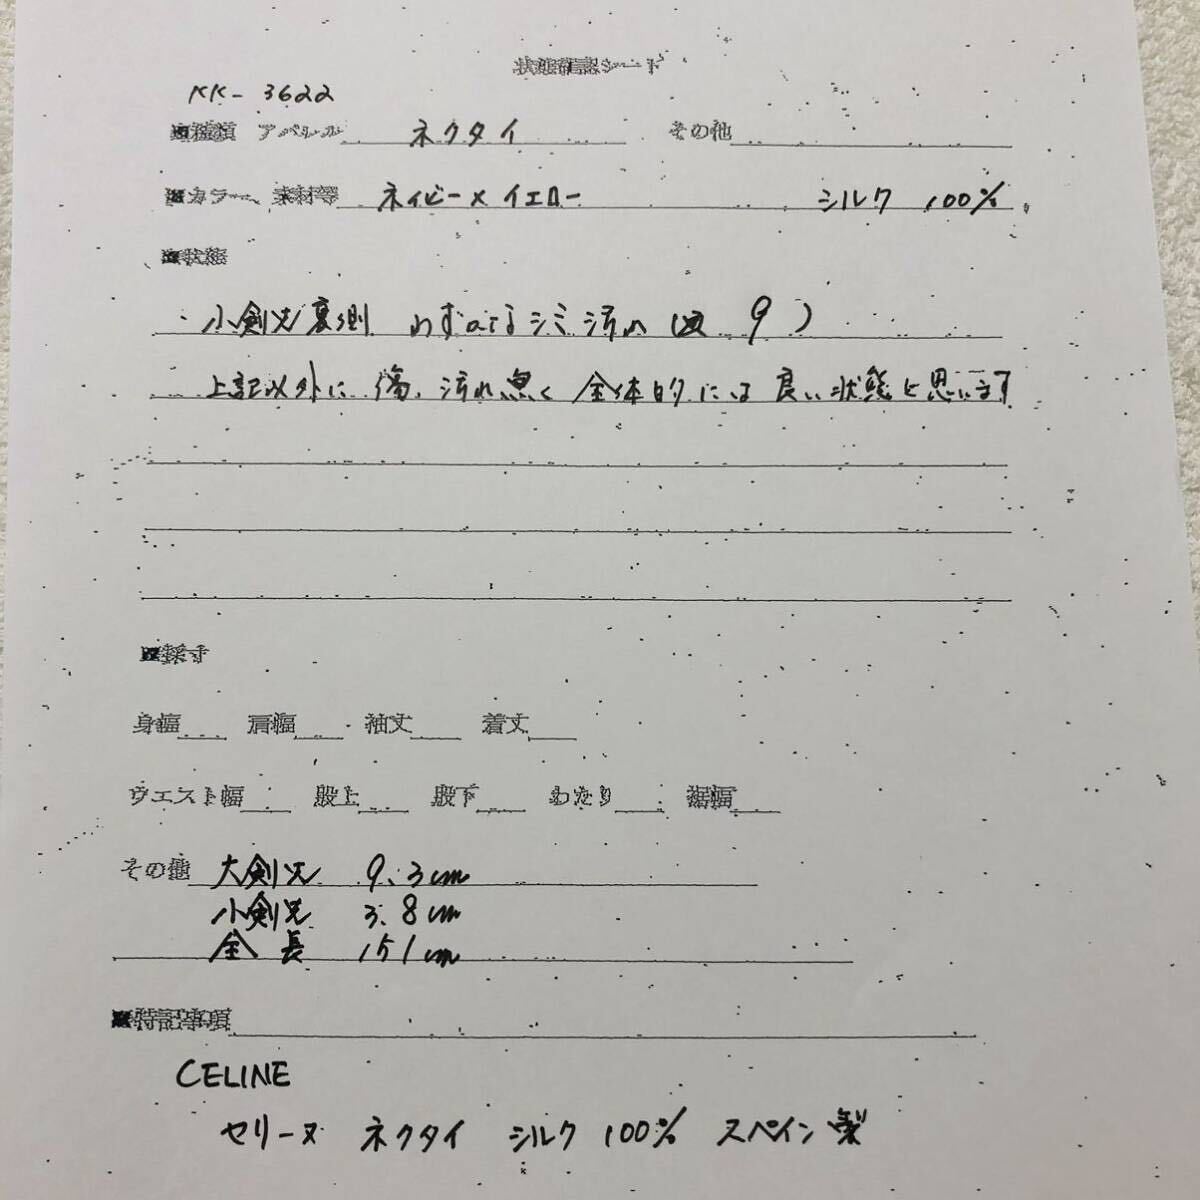 状態確認シート
KK-3622
■種類 アパレル ネクタイ その他
■カラー、素材等 ネイビー×イエロー シルク 100%
■状態
・小剣先裏側 わずかなるシミ汚れ( 9 )
上記以外に傷、汚れ無く 全体的には良い状態と思います
■採寸
身幅 肩幅 袖丈 着丈
ウエスト幅 股上 股下 わたり 裾幅
その他 大剣先 9.3cm
小剣先 3.8cm
全長 151cm
■特記事項
CELINE
セリーヌ ネクタイ シルク 100% スペイン製